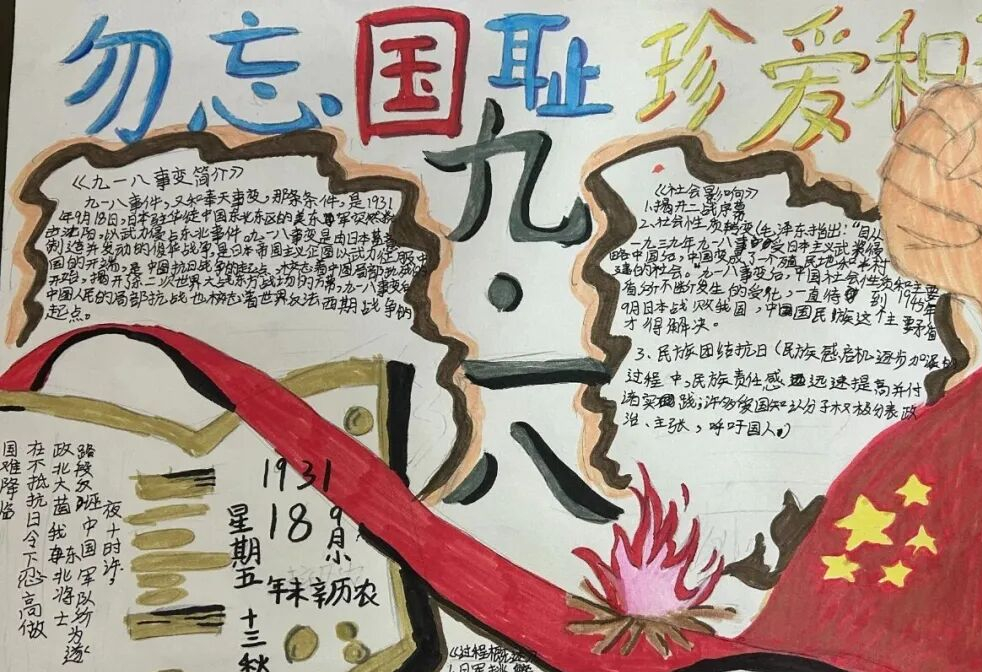 勿忘国耻 珍爱和
九·一八
《九一八事变简介》
九一八事件，又和奉天事变，那条条件，是1931
年9月18日，日本驻华徒中国东北东区的美东军突然
沈阳，以武力侵占东北事件。九一八事变是由日本蓄意
制造并发动的侵华战争，是日本帝国主义企图以武力征服中
国的开端，是中国抗日战争的起点，标志着中国局部抗战的
开始，揭开第二次世界大战东方战场的序幕，九一八事变后
中国人民的局部抗战也标志着世界反法西期战争的
起点。
《社会影响》
1、揭开二战序幕
2、社会性质转变(毛泽东指出："自从
一九三九年九一八事受日本主义武装侵
略中国后，中国变成了一个殖民地和半封
建的社会。"九一八事变后，中国社会性质和主要
盾分不断发生的变化，一直待到1945年
9月日本战败我国，中国国民族这个主要矛盾
才得解决。
3、民族团结抗日(民族感启机逐步加深的
过程中，民族责任感迅远速提高并付
诸实践；许多爱国知识分子积极分表政
治、主张，呼吁国人)
1931
9月小
18
星期五
农历辛未年
十三秋
夜十时许，
路段反班中国军队所为遂
政北大菌我 东北将士
在不抵抗日令下忍高做
国难降临
《过程概
1、日军挑